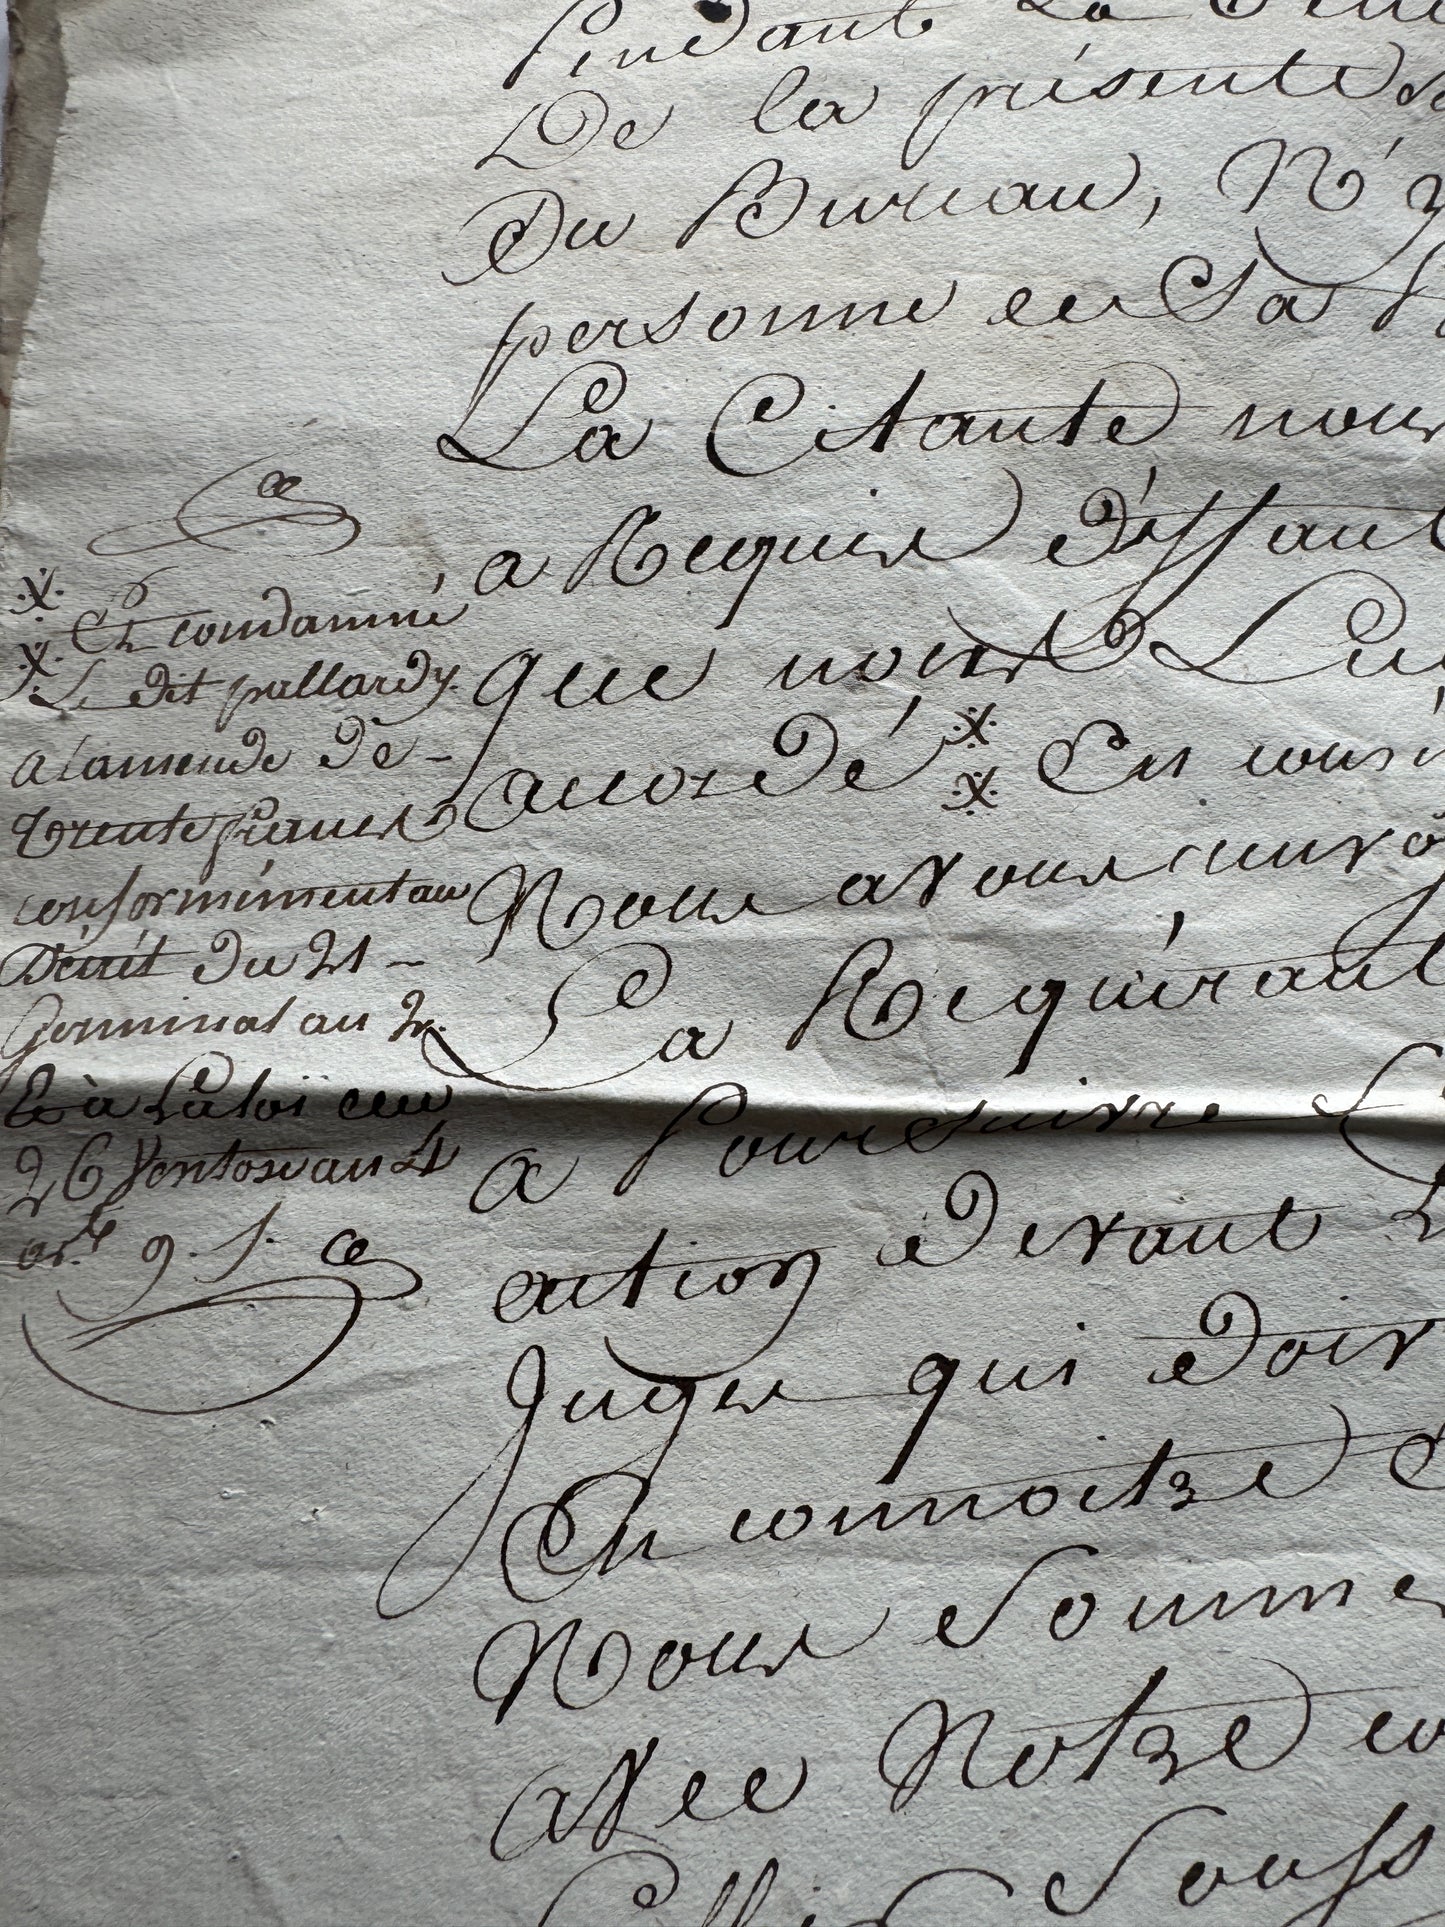 Pendant La
De la présente
Du Bureau, N'y
personne ee Sa
La Citante nous
a Requis déffaut
que nous Lui
accordé En
Nous avons
La Requérant
a Poursuivre
action devant
Juges qui doiv
En connoitre
Nous Somme
avec Notre
Souss
Et condamné
Le dit pallardy
a Lamende de
trente francs
conformément au
Décrét du 21
Germinal an 2.
Et à La loi du
26 Ventose an 4
art. 9. f.